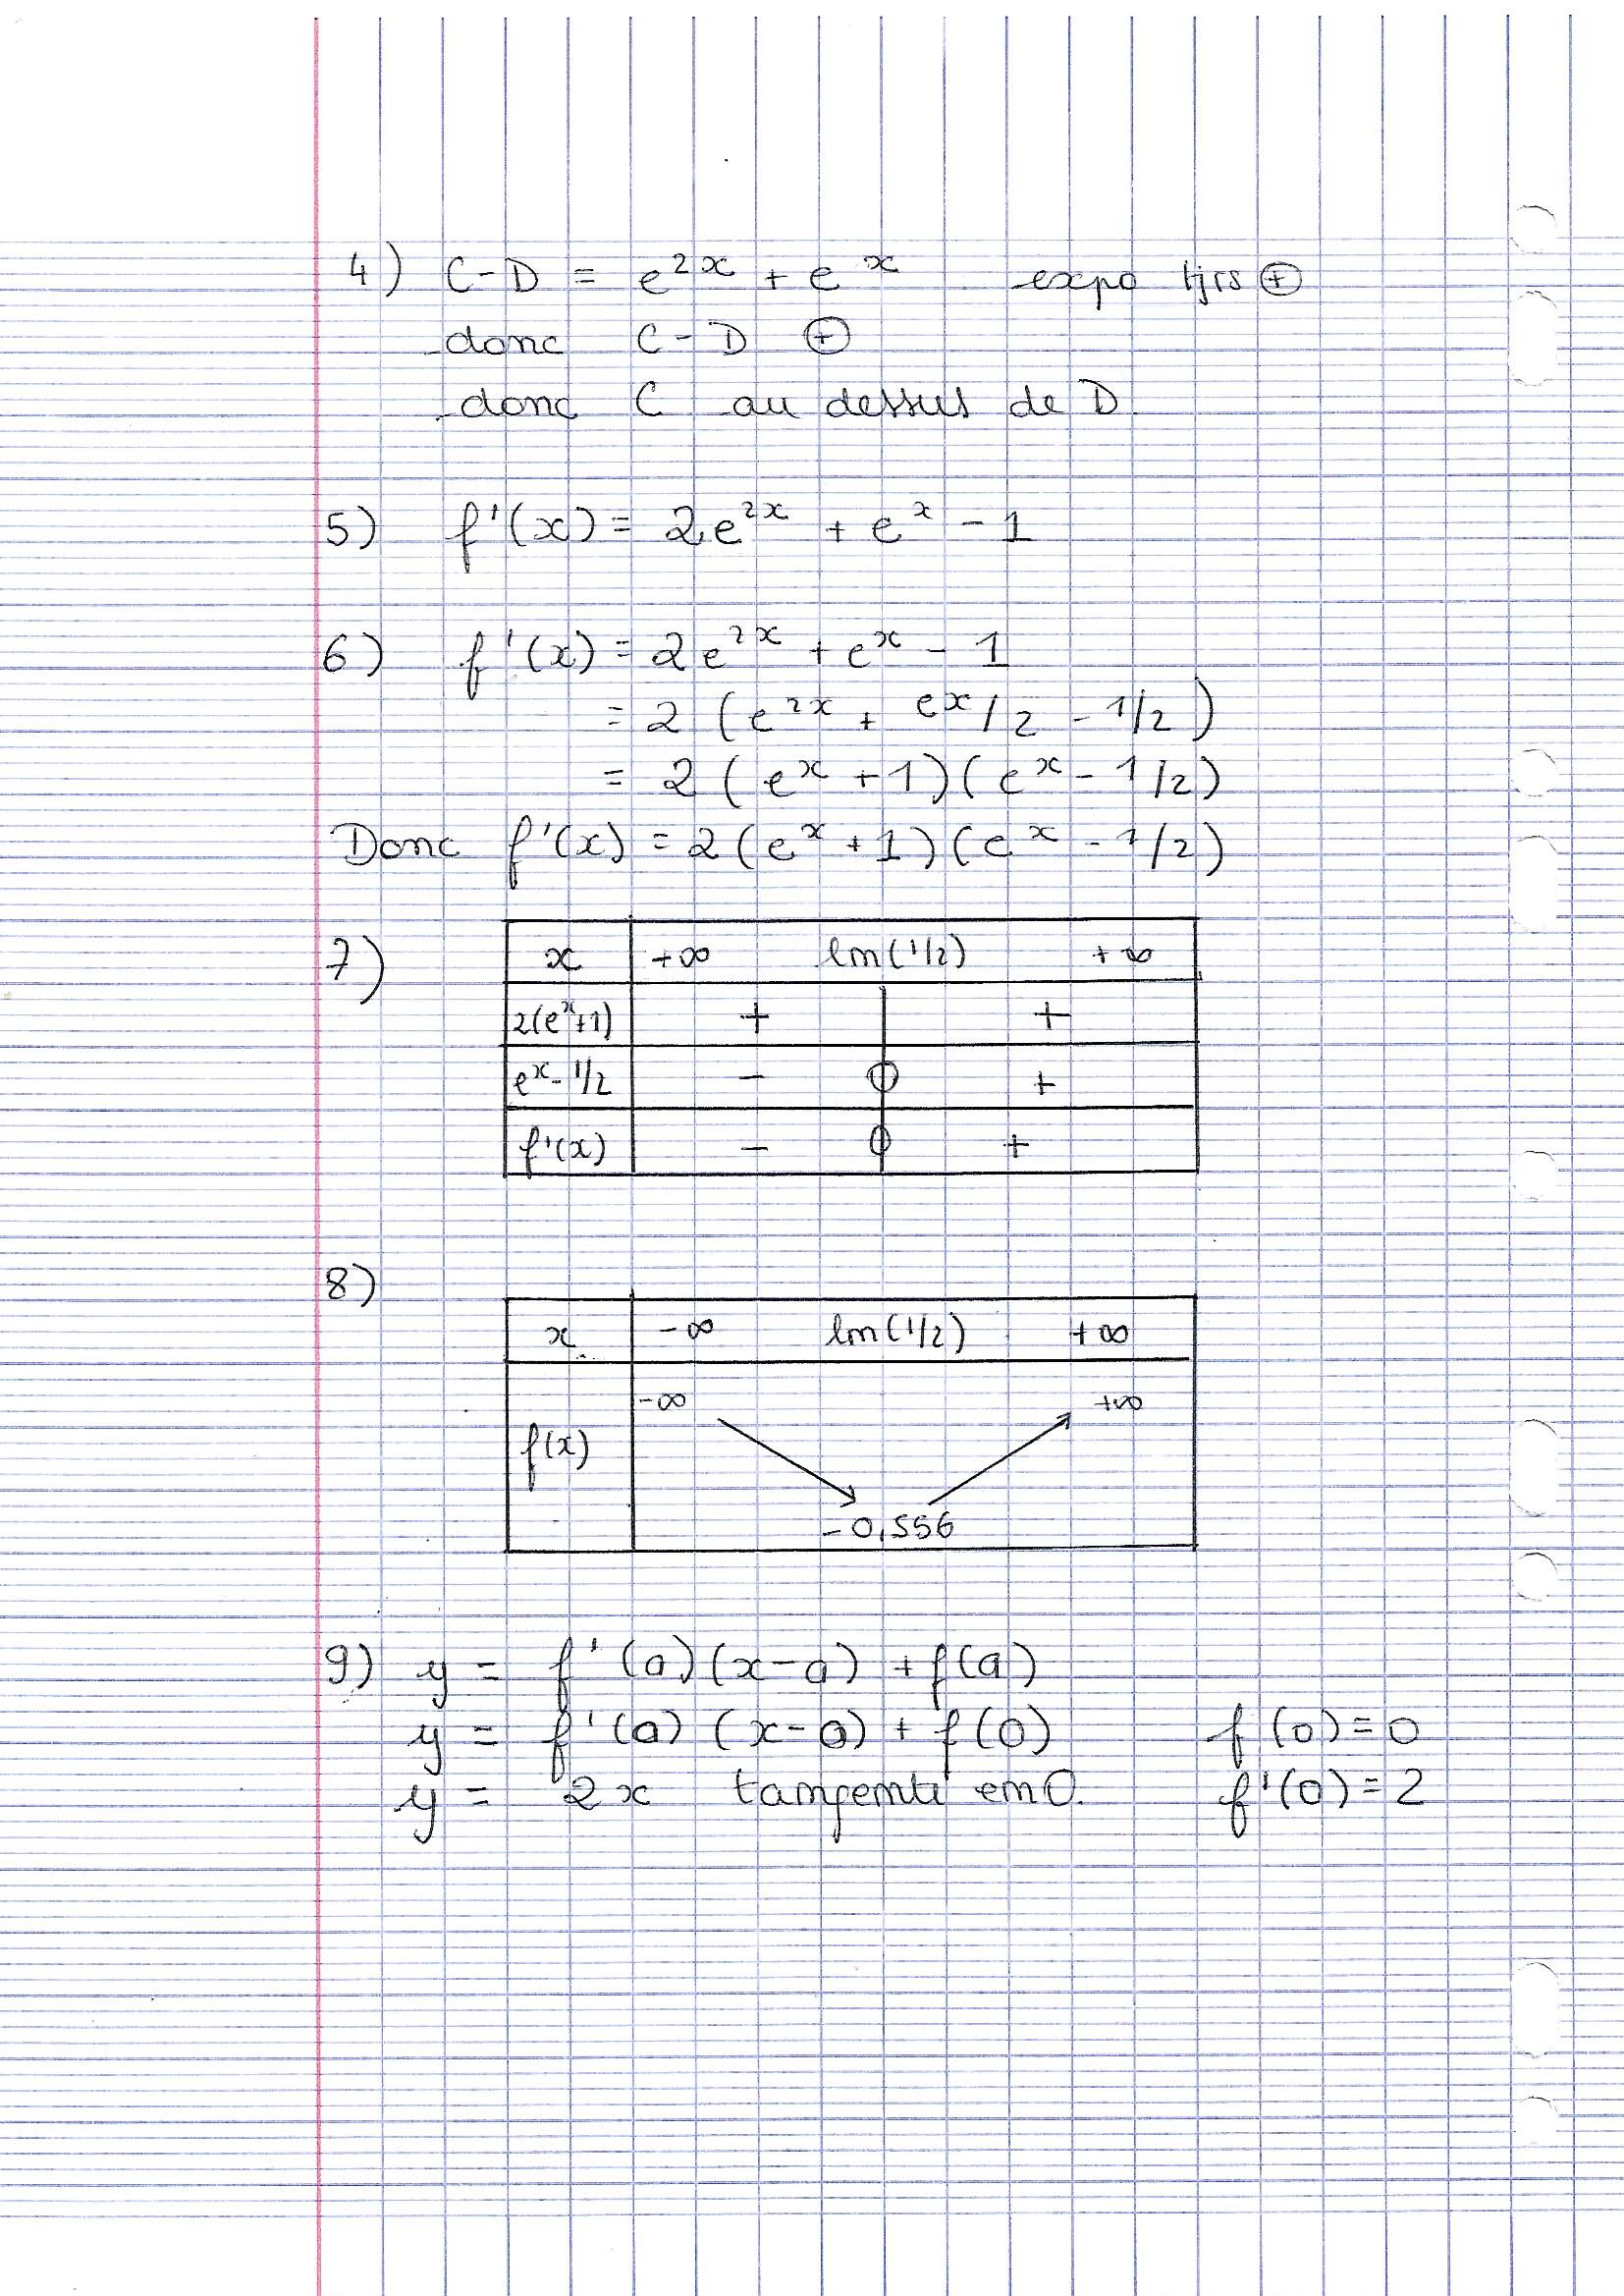 4) C-D = e^{2x} + e^x expo tjrs ⊕
donc C-D ⊕
donc C au dessus de D.
5) f'(x) = 2e^{2x} + e^x - 1
6) f'(x) = 2e^{2x} + e^x - 1
= 2 (e^{2x} + e^x/2 - 1/2)
= 2 (e^x + 1)(e^x - 1/2)
Donc f'(x) = 2(e^x + 1)(e^x - 1/2)
7)
x +∞ ln(1/2) +∞
2(e^x+1) + +
e^x - 1/2 - 0 +
f'(x) - 0 +
8)
x -∞ ln(1/2) +∞
-∞ +∞
f(x)
-0,556
9) y = f'(a)(x-a) + f(a)
y = f'(a) (x-0) + f(0) f(0) = 0
y = 2x tangente en 0. f'(0) = 2